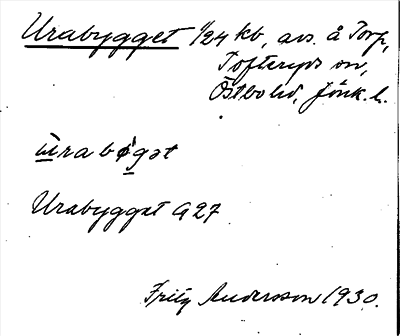 Urabygget 1/24 kb, avs. å Torp,
Tofteryds sn,
Östbo hd, Jönk. l.
ùrabǿgət
Urabygget G 27
Fritz Andersson 1930.